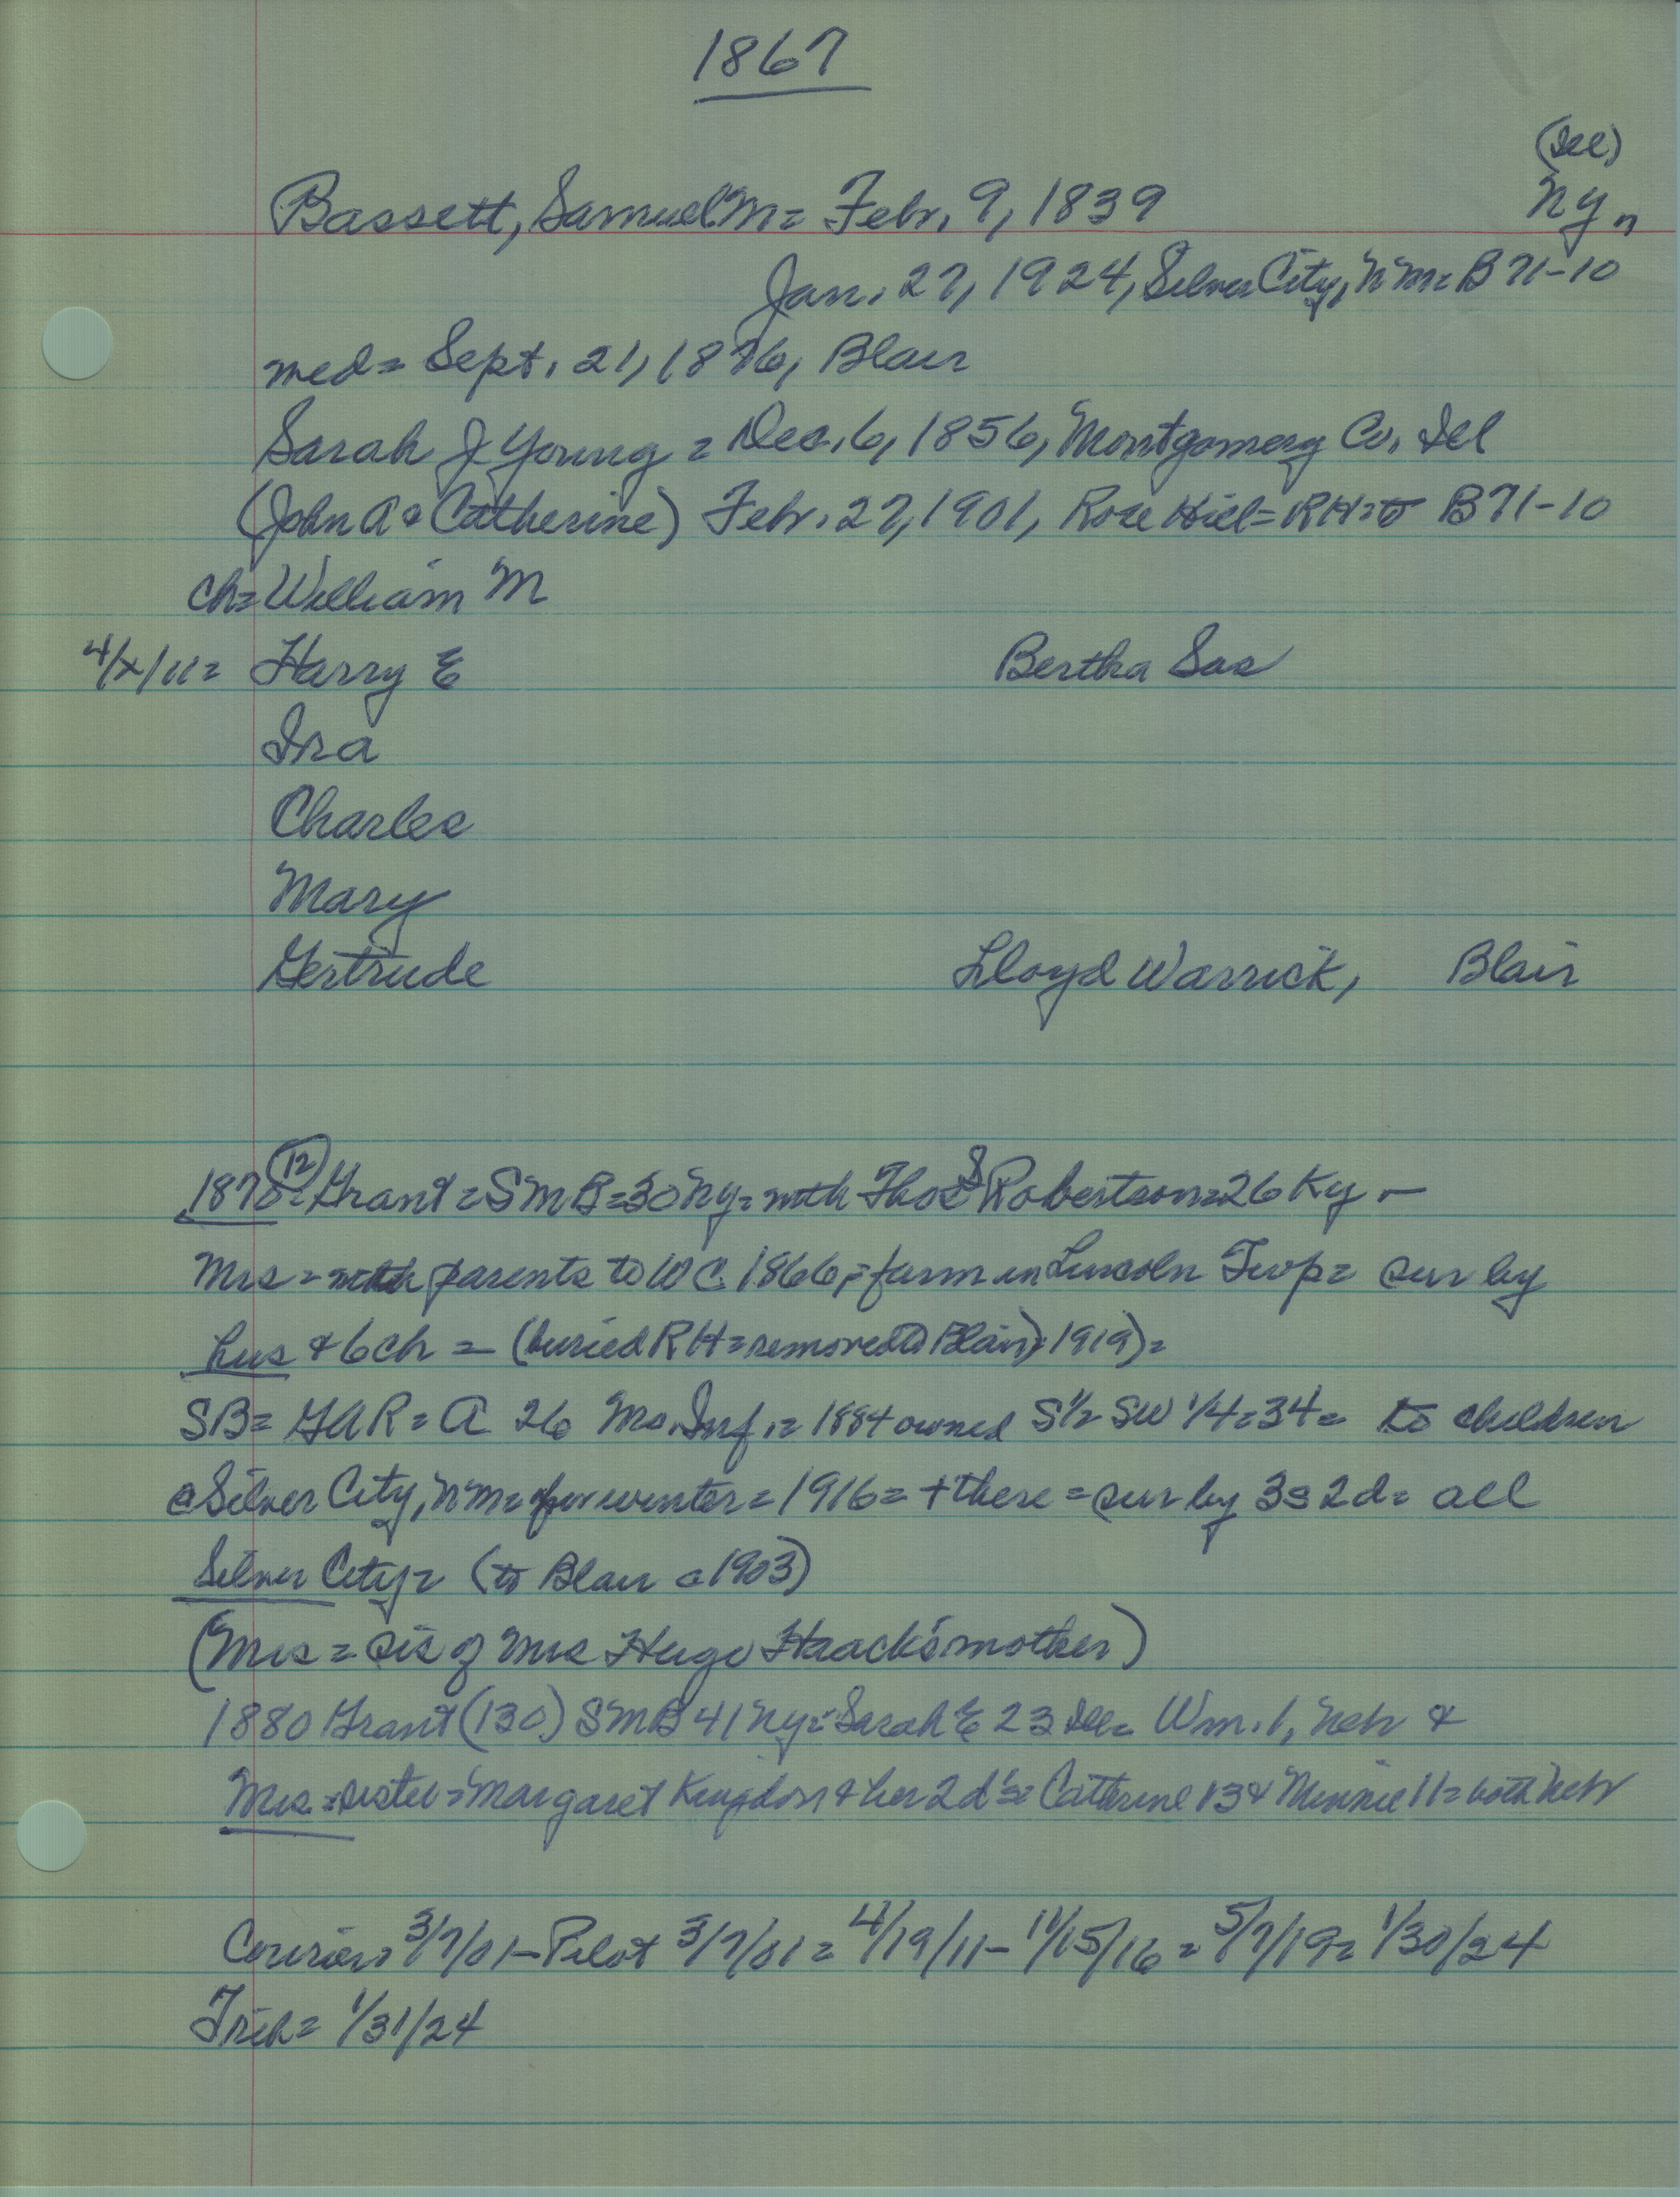 1867
(Ill)
Bassett, Samuel M = Febr. 9, 1839 Ny
Jan. 27, 1924, Silver City, N M = B 71-10
med = Sept. 21, 1876, Blair
Sarah J Young = Dec. 6, 1856, Montgomery Co. Ill
(John A & Catherine) Febr. 27, 1901, Rose Hill = RH = to B 71-10
ch = William M
4/x/11 = Harry E Bertha Sas
Ira
Charles
Mary
Gertrude Lloyd Warrick, Blair
1870 (12) = Grant = S M B = 30 Ny = with Thos S Robertson = 26 Ky -
Mrs = with parents to W C 1866; = farm in Lincoln Twp = sur by
hus & 6 ch = (buried RH = removed to Blair) 1919) =
SB = GAR = A 26 Mo. Inf. = 1884 owned S 1/2 SW 1/4 = 34 = to children
@ Silver City, N M = for winter = 1916 = + there = sur by 3s 2d = all
Silver City = (to Blair c 1903)
(Mrs = sis of Mrs Hugo Haack's mother)
1880 Grant (130) S M B 41 Ny = Sarah E 23 Ill = Wm. 1, Nebr &
Mrs = sister = Margaret Kingdon & her 2 d's = Catherine 13 & Minnie 11 = both Nebr
Courier = 3/7/01 - Pilot 3/7/01 = 4/19/11 - 11/15/16 = 5/7/19 = 1/30/24
Trib = 1/31/24